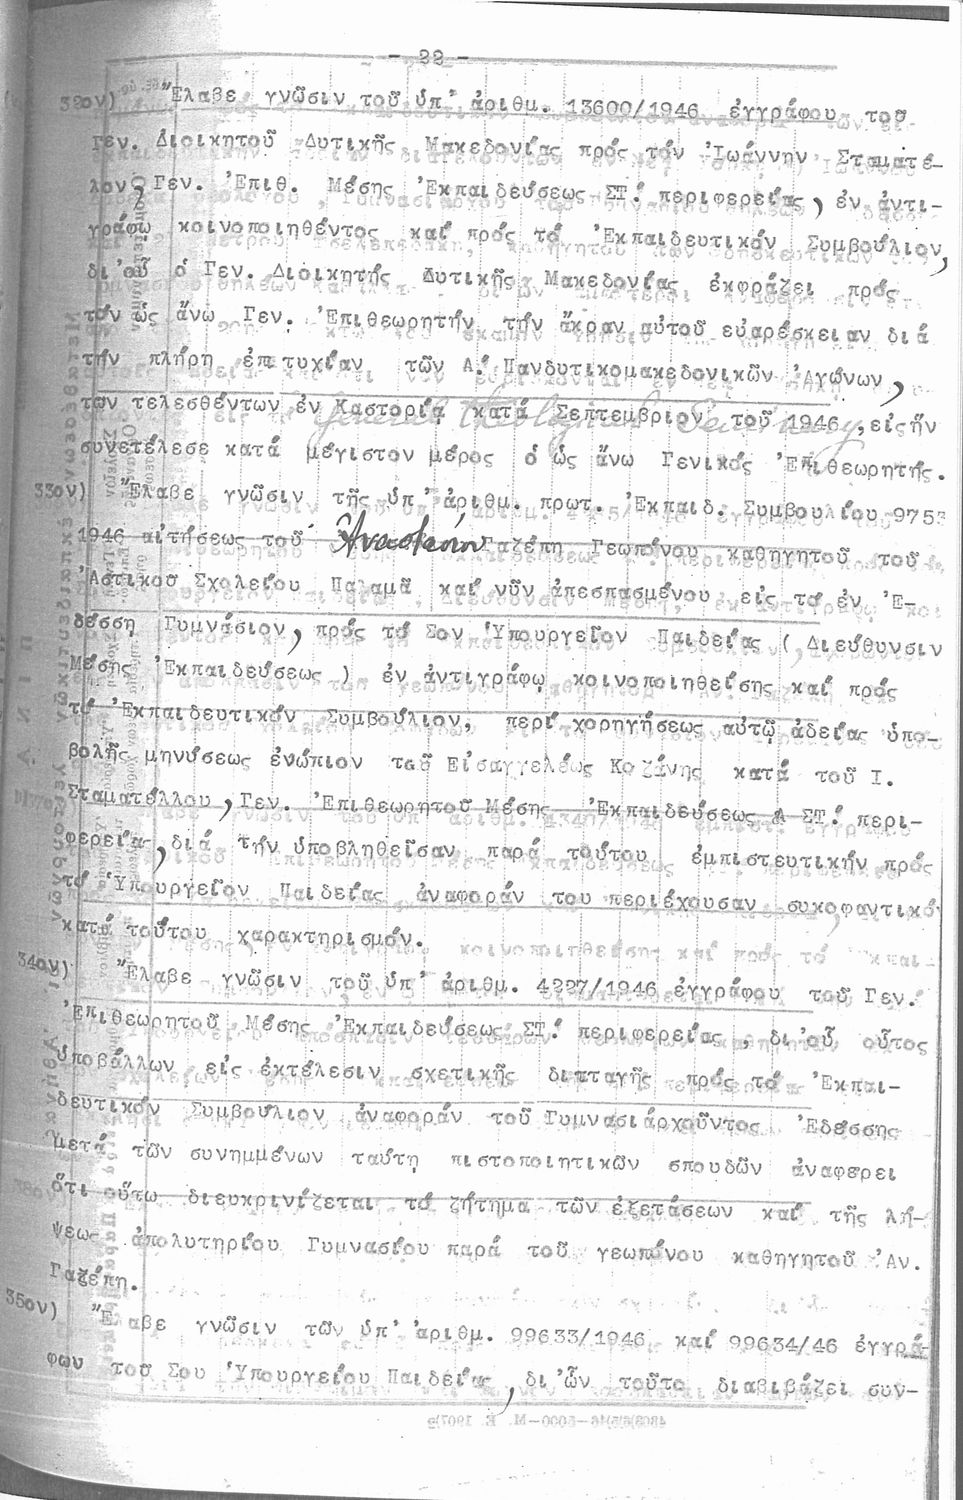 - 22 -
32ον) Ἔλαβε γνῶσιν τοῦ ὑπ' ἀριθμ. 13600/1946 ἐγγράφου τοῦ
Γεν. Διοικητοῦ Δυτικῆς Μακεδονίας πρός τόν Ἰωάννην Σταματέ-
λον, Γεν. Ἐπιθ. Μέσης Ἐκπαιδεύσεως ΣΤ! περιφερείας, ἐν ἀντι-
γράφῳ κοινοποιηθέντος καί πρός τό Ἐκπαιδευτικόν Συμβούλιον,
δι' οὗ ὁ Γεν. Διοικητής Δυτικῆς Μακεδονίας ἐκφράζει πρός
τόν ὡς ἄνω Γεν. Ἐπιθεωρητήν τήν ἄκραν αὐτοῦ εὐαρέσκειαν διά
τήν πλήρη ἐπιτυχίαν τῶν Α! Πανδυτικομακεδονικῶν Ἀγώνων,
τῶν τελεσθέντων ἐν Καστορίᾳ κατά Σεπτεμβριον τοῦ 1946, εἰς ἥν
συνετέλεσε κατά μέγιστον μέρος ὁ ὡς ἄνω Γενικός Ἐπιθεωρητής.
33ον) Ἔλαβε γνῶσιν τῆς ὑπ' ἀριθμ. πρωτ. Ἐκπαιδ. Συμβουλίου 9753
1946 αἰτήσεως τοῦ Ἀναστασίου Γαζέπη Γεωπόνου καθηγητοῦ τοῦ
Ἀστικοῦ Σχολείου Παλαμᾶ καί νῦν ἀπεσπασμένου εἰς τό ἐν Ἐ-
δέσσῃ Γυμνάσιον, πρός τό Σον Ὑπουργεῖον Παιδείας ( Διεύθυνσιν
Μέσης Ἐκπαιδεύσεως ) ἐν ἀντιγράφῳ κοινοποιηθείσης καί πρός
τό Ἐκπαιδευτικόν Συμβούλιον, περί χορηγήσεως αὐτῷ ἀδείας ὑπο-
βολῆς μηνύσεως ἐνώπιον τοῦ Εἰσαγγελέως Κοζάνης κατά τοῦ Ι.
Σταματέλλου, Γεν. Ἐπιθεωρητοῦ Μέσης Ἐκπαιδεύσεως ΣΤ! περι-
φερείας, διά τήν ὑποβληθεῖσαν παρά τούτου ἐμπιστευτικήν πρός
τό Ὑπουργεῖον Παιδείας ἀναφοράν του περιέχουσαν συκοφαντικόν
κατά τούτου χαρακτηρισμόν.
34ον) Ἔλαβε γνῶσιν τοῦ ὑπ' ἀριθμ. 4227/1946 ἐγγράφου τοῦ Γεν.
Ἐπιθεωρητοῦ Μέσης Ἐκπαιδεύσεως ΣΤ! περιφερείας, δι' οὗ οὗτος
ὑποβάλλων εἰς ἐκτέλεσιν σχετικῆς διαταγῆς πρός τό Ἐκπαι-
δευτικόν Συμβούλιον ἀναφοράν τοῦ Γυμνασιάρχοῦντος Ἐδέσσης
μετά τῶν συνημμένων ταύτῃ πιστοποιητικῶν σπουδῶν ἀναφερει
ὅτι οὕτω διευκρινίζεται τό ζήτημα τῶν ἐξετάσεων καί τῆς λή-
ψεως ἀπολυτηρίου Γυμνασίου παρά τοῦ γεωπόνου καθηγητοῦ Ἀν.
Γαζέπη.
35ον) Ἔλαβε γνῶσιν τῶν ὑπ' ἀριθμ. 99633/1946 καί 99634/46 ἐγγρά-
φων τοῦ Σου Ὑπουργείου Παιδείας, δι' ὧν τοῦτο διαβιβάζει συν-